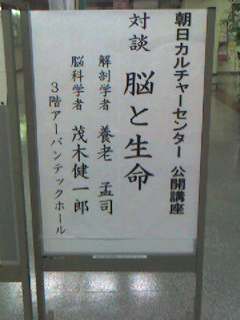 朝日カルチャーセンター 公開講座
対談 脳と生命
解剖学者 養老 孟司
脳科学者 茂木健一郎
3階アーバンテックホール